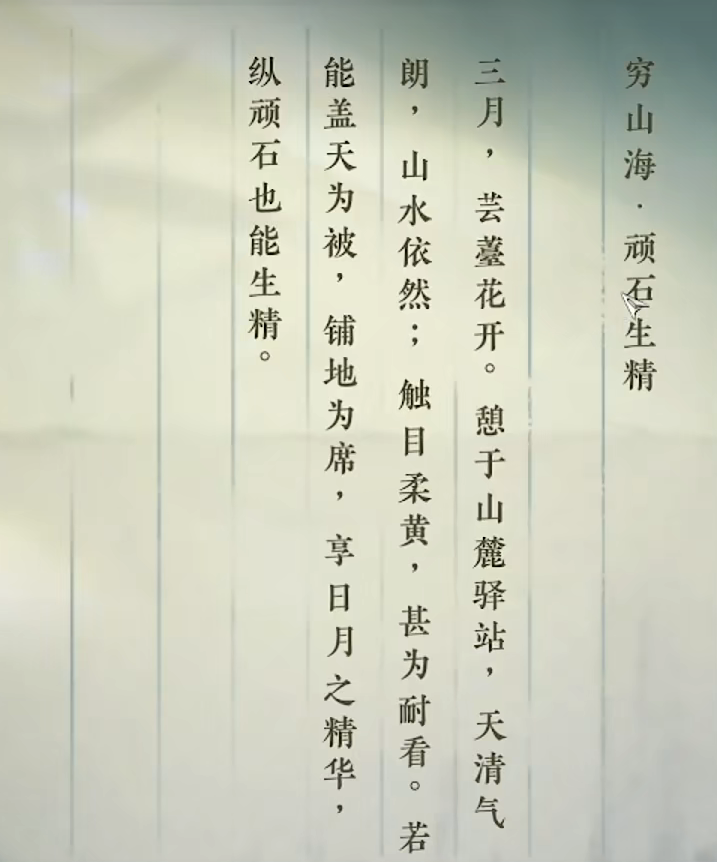 穷山海·顽石生精
三月，芸薹花开。憩于山麓驿站，天清气
朗，山水依然；触目柔黄，甚为耐看。若
能盖天为被，铺地为席，享日月之精华，
纵顽石也能生精。